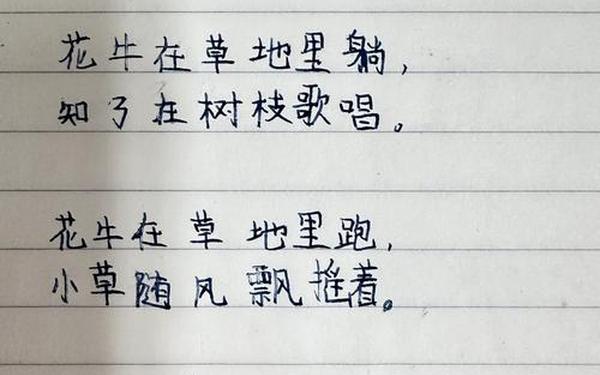 花牛在草地里躺，
知了在树枝歌唱。
花牛在草地里跑，
小草随风飘摇着。